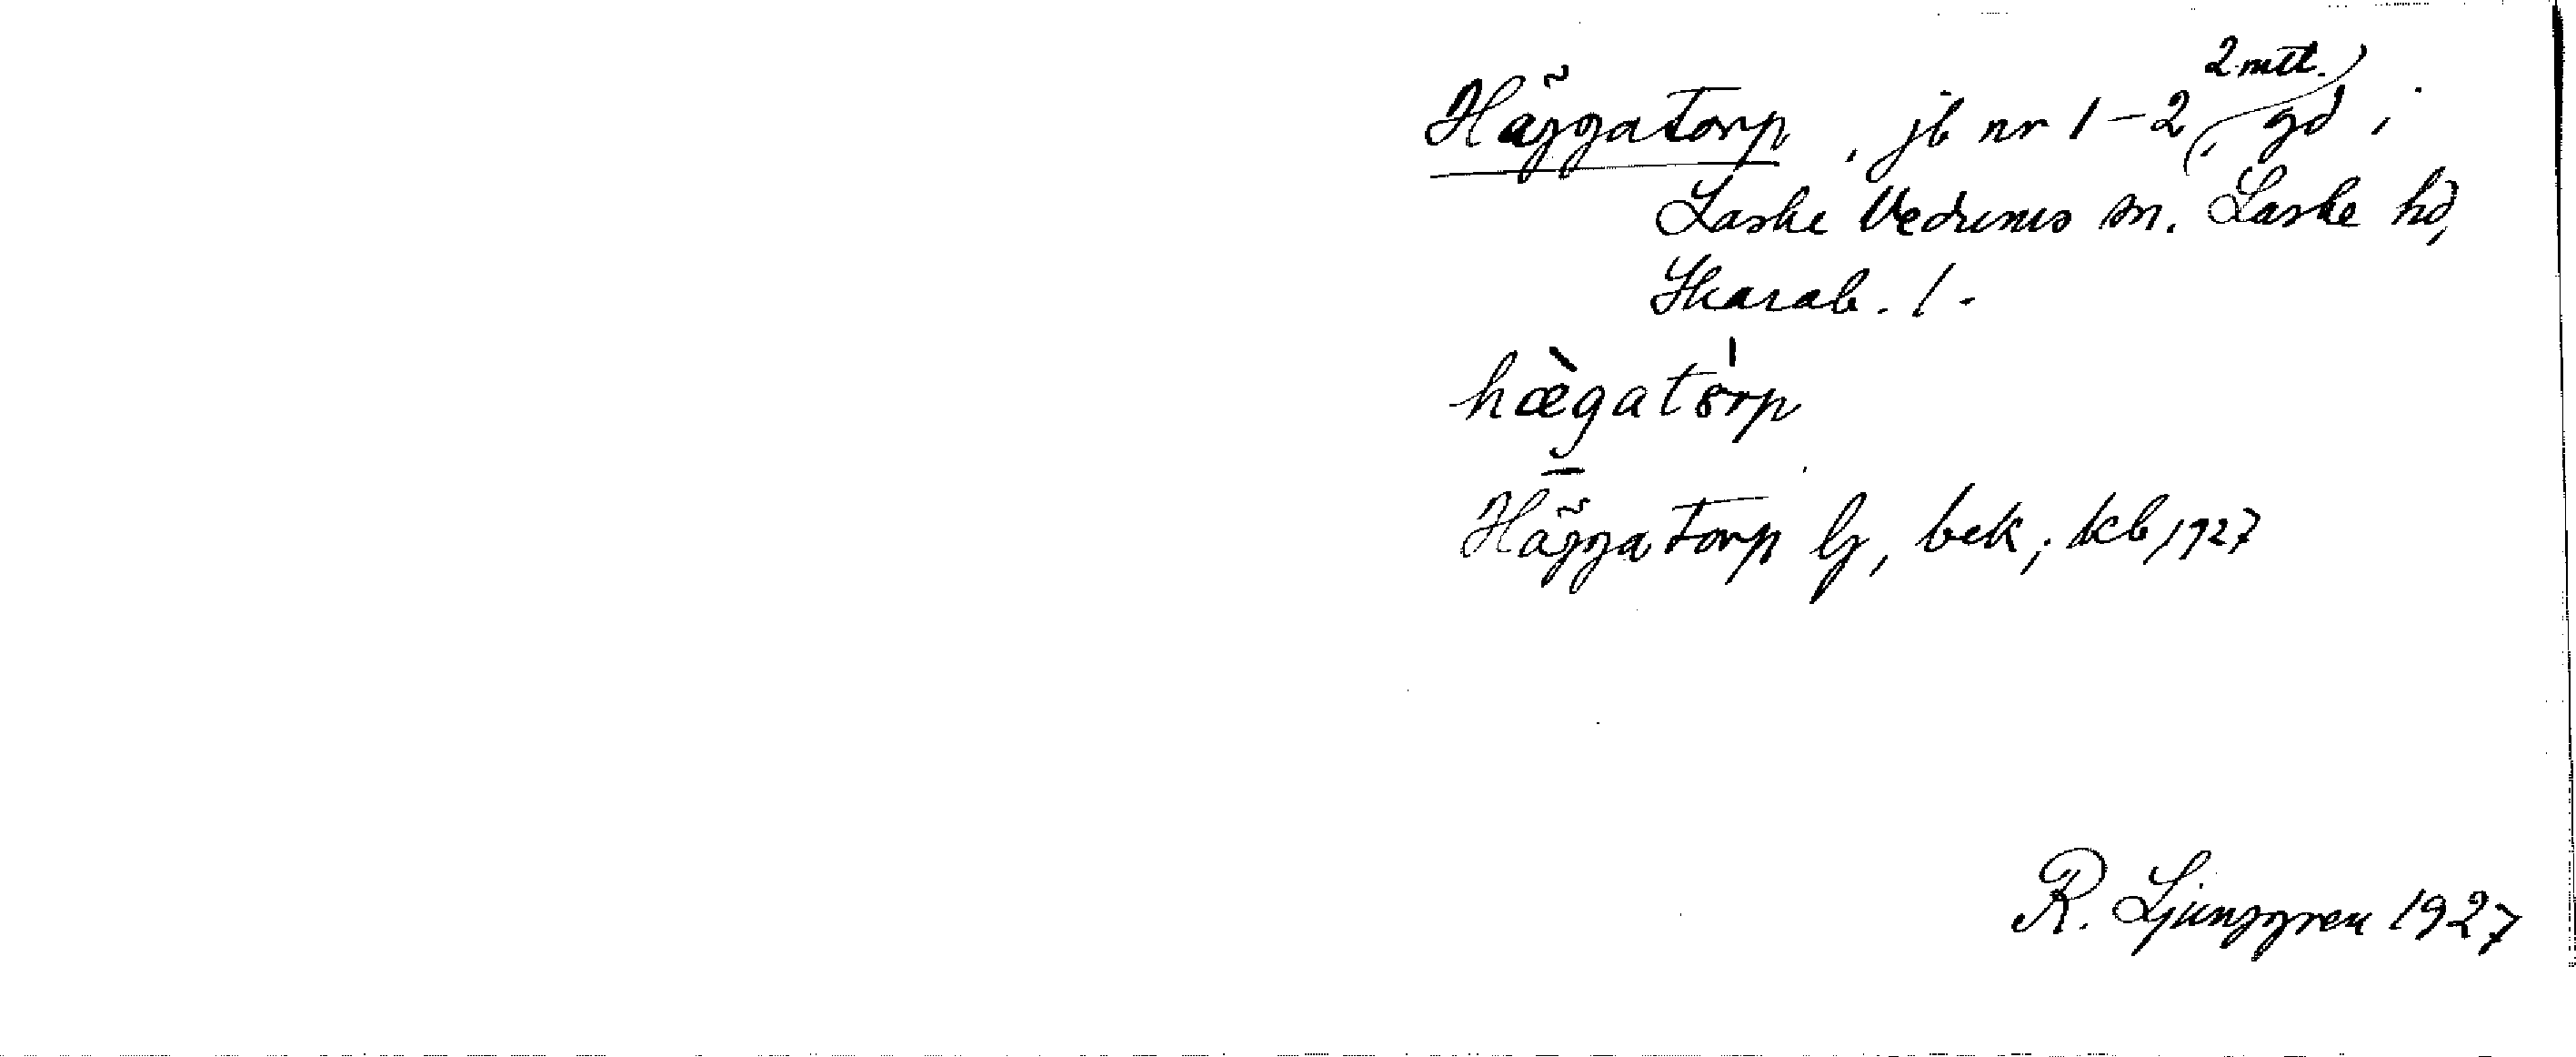 Häggatorp, jb nr 1-2 (, 2 mtl.) gd i
Laske Vedums sn. Laske hd,
Skarab. l.
hæ̀gatörp
Häggatorp Lj, bek; kb 1927
R. Ljunggren 1927